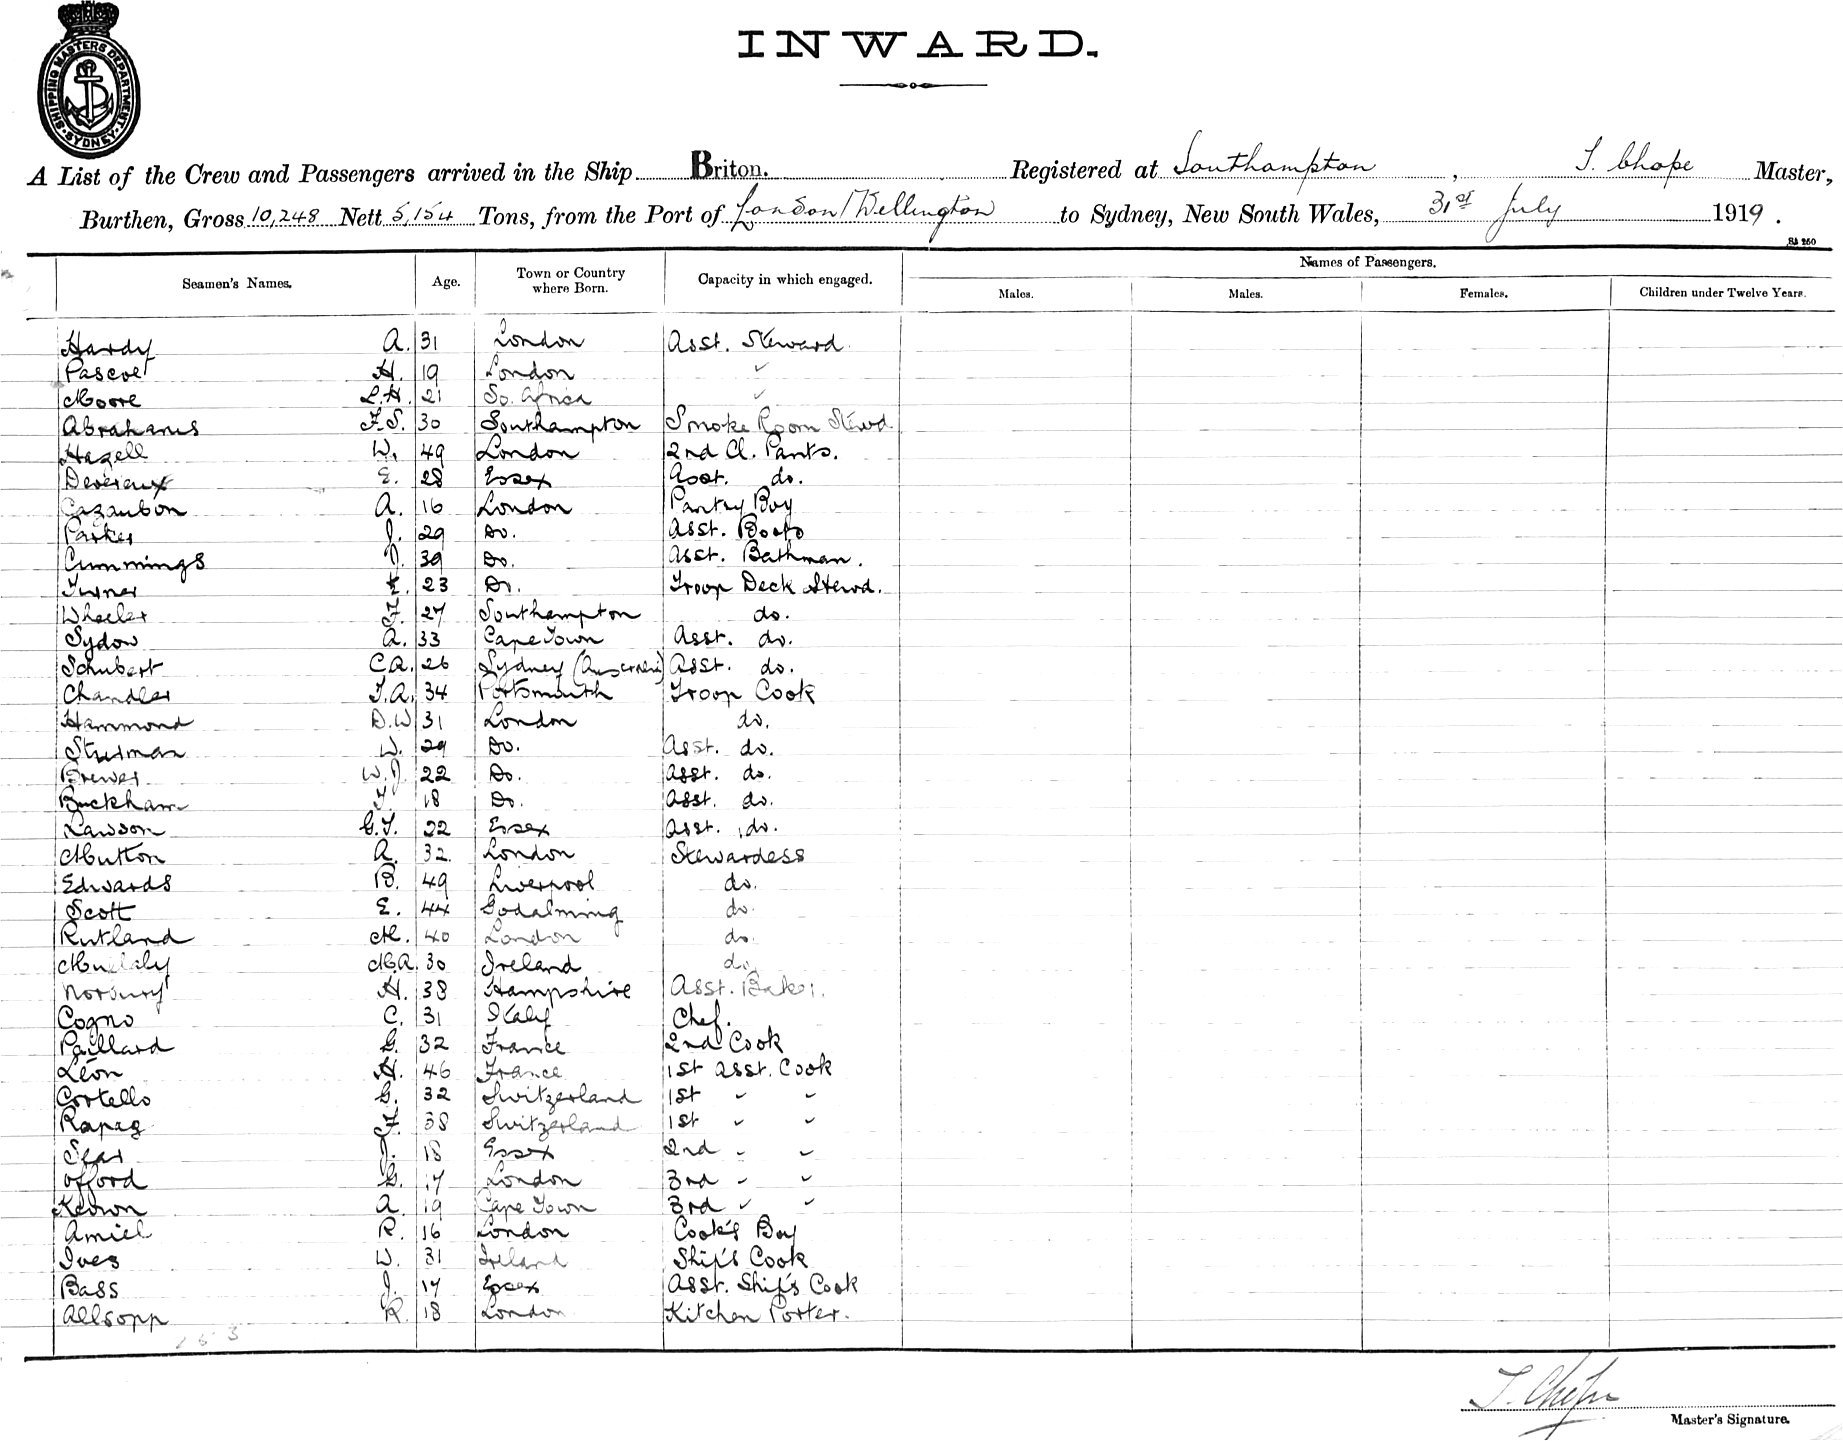 SHIPPING MASTERS DEPARTMENT SYDNEY
INWARD.
A List of the Crew and Passengers arrived in the Ship Briton. Registered at Southampton, Master,
Burthen, Gross 10,248 Nett 5,154 Tons, from the Port of London/Wellington to Sydney, New South Wales, 31st July 1919.
Seamen's Names. Age. Town or Country where Born. Capacity in which engaged. Names of Passengers.
Males. Males. Females. Children under Twelve Years.
Hardy A. 31 London Asst. Steward
Pascoe H. 19 London "
Moore L.H. 21 So. Africa "
Abrahams F.S. 30 Southampton Smoke Room Stewd
Hazell W. 49 London 2nd Cl. Pants.
Devereux E. 28 Essex Asst. do.
Cazaubon A. 16 London Pantry Boy
Parker J. 29 Do. Asst. Boots
Cummings J. 39 Do. Asst. Bathman.
Turner E. 23 Do. Troop Deck Stewd.
Wheeler F. 27 Southampton do.
Sydow A. 33 Cape Town Asst. do.
Schubert C.A. 26 Sydney (Australia) Asst. do.
Chandler F.A. 34 Portsmouth Troop Cook
Hammond D.W 31 London do.
Sturman W. 29 Do. Asst. do.
Brewer W.J. 22 Do. Asst. do.
Buckham F. 18 Do. Asst. do.
Lawson G.F. 22 Essex Asst. do.
Mutton A. 32 London Stewardess
Edwards B. 49 Liverpool do.
Scott E. 44 Godalming do.
Rutland M. 40 London do.
M.A. 30 Ireland do.
Norbury H. 38 Hampshire Asst. Baker.
Cogno C. 31 Italy Chef.
Paillard G. 32 France 2nd Cook
Léon H. 46 France 1st Asst. Cook
Cortello G. 32 Switzerland 1st " "
F. 38 Switzerland 1st " "
Sear J. 18 Essex 2nd " "
Offord G. 17 London 3rd " "
Keown A. 19 Cape Town 3rd " "
Amiel R. 16 London Cook's Boy
Ives W. 31 Ireland Ship's Cook
Bass J. 17 Essex Asst. Ship's Cook
Allsopp R. 18 London Kitchen Porter.
153
Master's Signature.